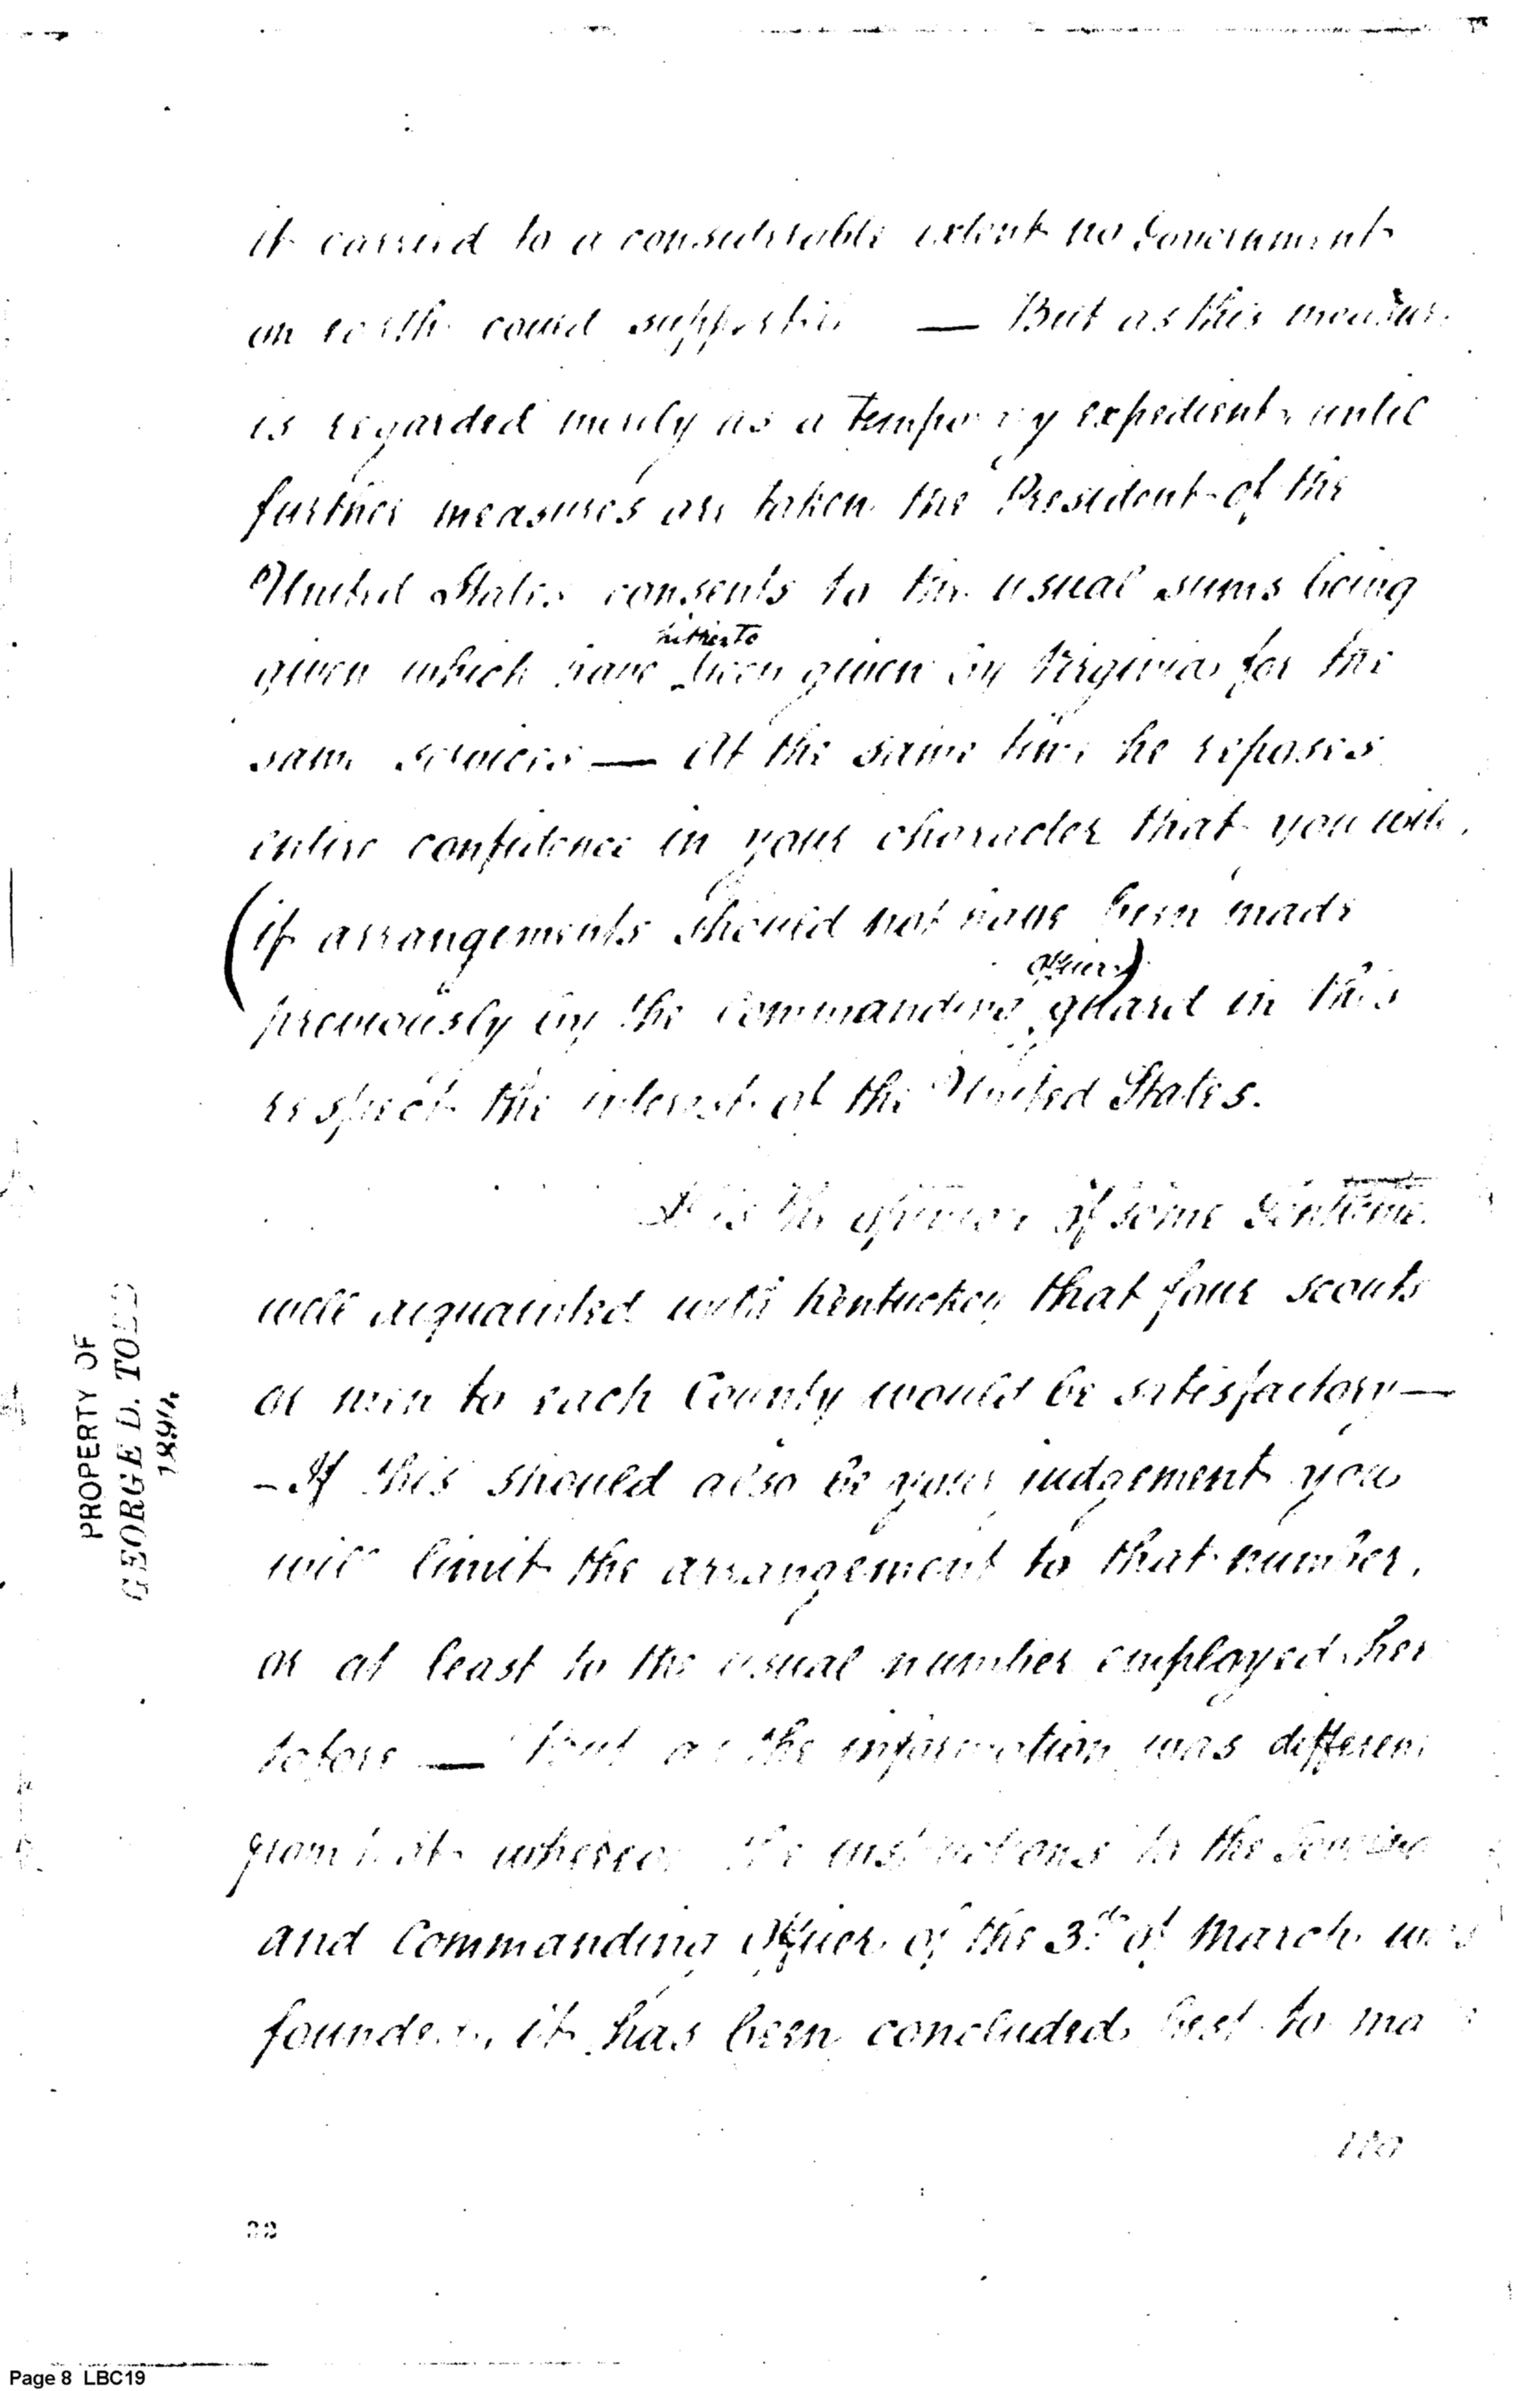 if carried to a considerable extent no Government
on earth could support it — But as this measure
is regarded merely as a temporary expedient, until
further measures are taken the President of the
United States consents to the usual sums being
hitherto
given which have been given by Virginia for the
same services — At the same time he reposes
entire confidence in your character that you will,
(if arrangements should not have been made
officer)
previously by the Commanding guard in this
respect the interest of the United States.
It is the opinion of some Gentleme
well acquainted with Kentuckey that four scouts
or men to each County would be satisfactory —
- If this should also be your judgement you
will limit the arrangement to that number,
or at least to the usual number employed her
tofore — But as the information was different
from that whereon the instructions to the
and Commanding officer of the 3d of March was
founded, it has been concluded best to ma
PROPERTY OF
GEORGE D. TODD
1894.
Page 8 LBC19